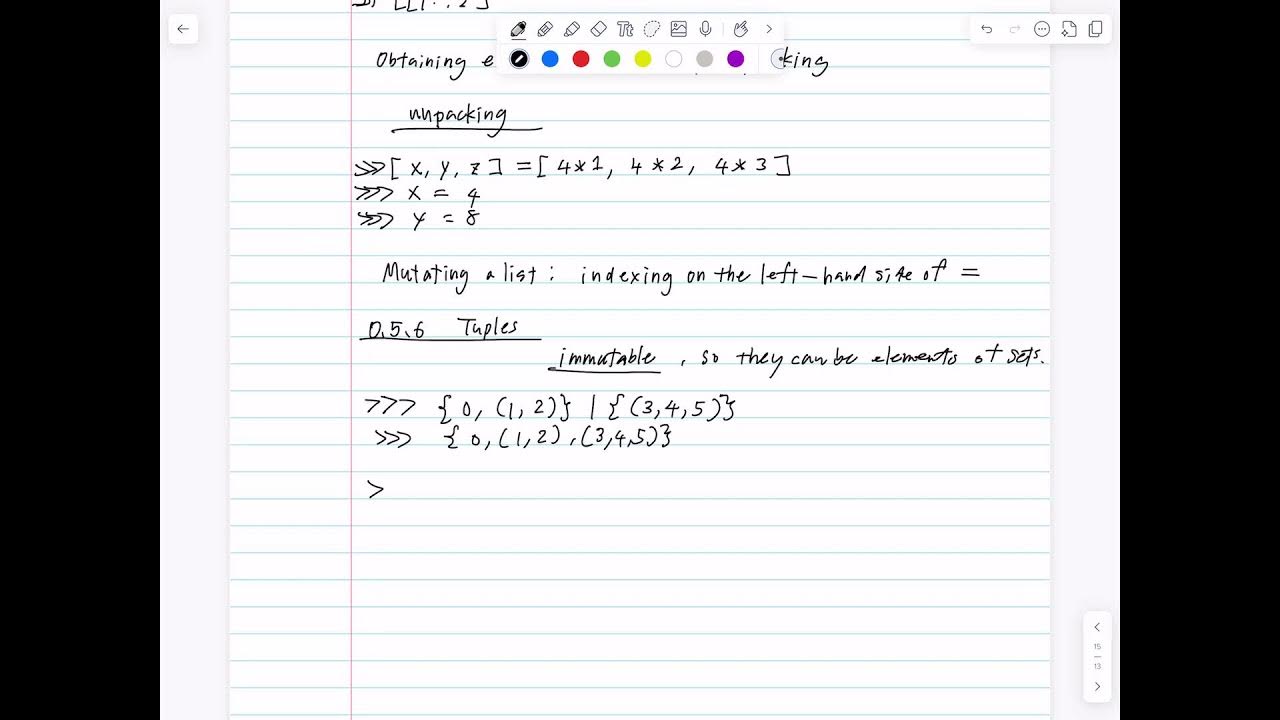 Obtaining e king
unpacking
>>> [ x, y, z ] = [ 4*1, 4 * 2, 4 * 3 ]
>>> x = 4
>>> y = 8
Mutating a list : indexing on the left-hand side of =
0.5.6 Tuples
immutable , so they can be elements of sets.
>>> { 0, (1, 2)} | { (3, 4, 5)}
>>> { 0, (1, 2) , (3,4,5)}
>
15
13